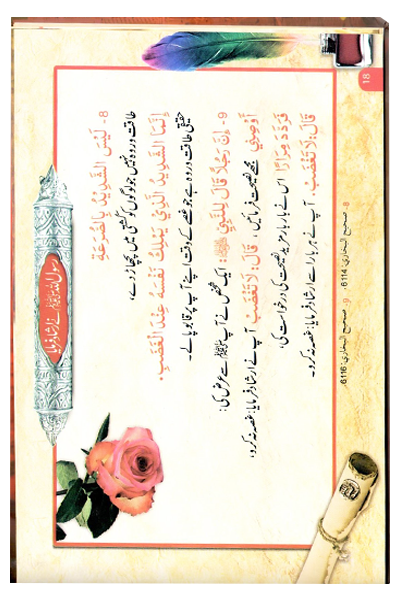 رسول اللہ ﷺ نے ارشاد فرمایا
8- لَيْسَ الشَّدِيْدُ بِالصُّرَعَةِ
طاقت ور وہ نہیں جو لوگوں کو کشتی میں پچھاڑ دے،
إِنَّمَا الشَّدِيْدُ الَّذِيْ يَمْلِكُ نَفْسَهُ عِنْدَ الْغَضَبِ.
حقیقی طاقت ور وہ ہے جو غصے کے وقت اپنے آپ پر قابو پا لے۔
9- إِنَّ رَجُلًا قَالَ لِلنَّبِيِّ ﷺ: ایک شخص نے آپ ﷺ سے عرض کی:
أَوْصِنِيْ مجھے نصیحت فرمائیں، قَالَ: لَا تَغْضَبْ آپ نے ارشاد فرمایا: غصہ نہ کرو،
فَرَدَّدَ مِرَارًا اس نے بار بار مزید نصیحت کی درخواست کی،
قَالَ: لَا تَغْضَبْ. آپ نے ہر بار اسے ارشاد فرمایا: غصہ نہ کرو۔
8- صحيح البخاري: 6114. 9- صحيح البخاري: 6116.
18